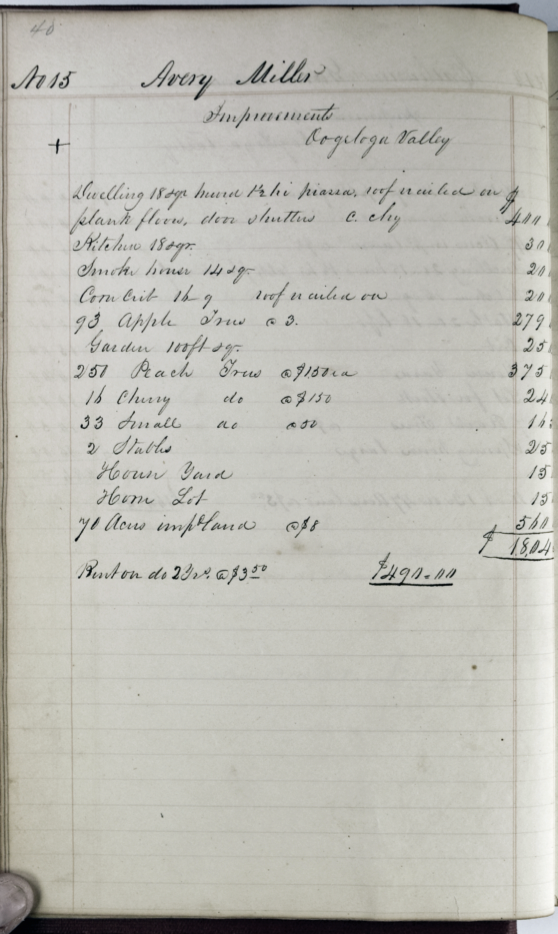 40
No 15 Avery Miller
Improvements
+ Oogeloga Valley
Dwelling 18 sqr hewed 1½ hi piazza, roof nailed on $
plank floors, door shutters c. chy 400
Kitchen 18 sqr. 30
Smoke house 14 sq. 20
Corn Crib 16 q roof nailed on 20
93 Apple Trees @ 3. 279
Garden 100ft sq. 25
250 Peach Trees @ $1.50 ea 375
16 Cherry do @ $1.50 24
33 Small do @ 50 16
2 Stables 25
House Yard 15
Horse Lot 15
70 Acres impd land @ $8 560
$ 1804
Rent on do 2 Yrs. @ $3.50 $490.00